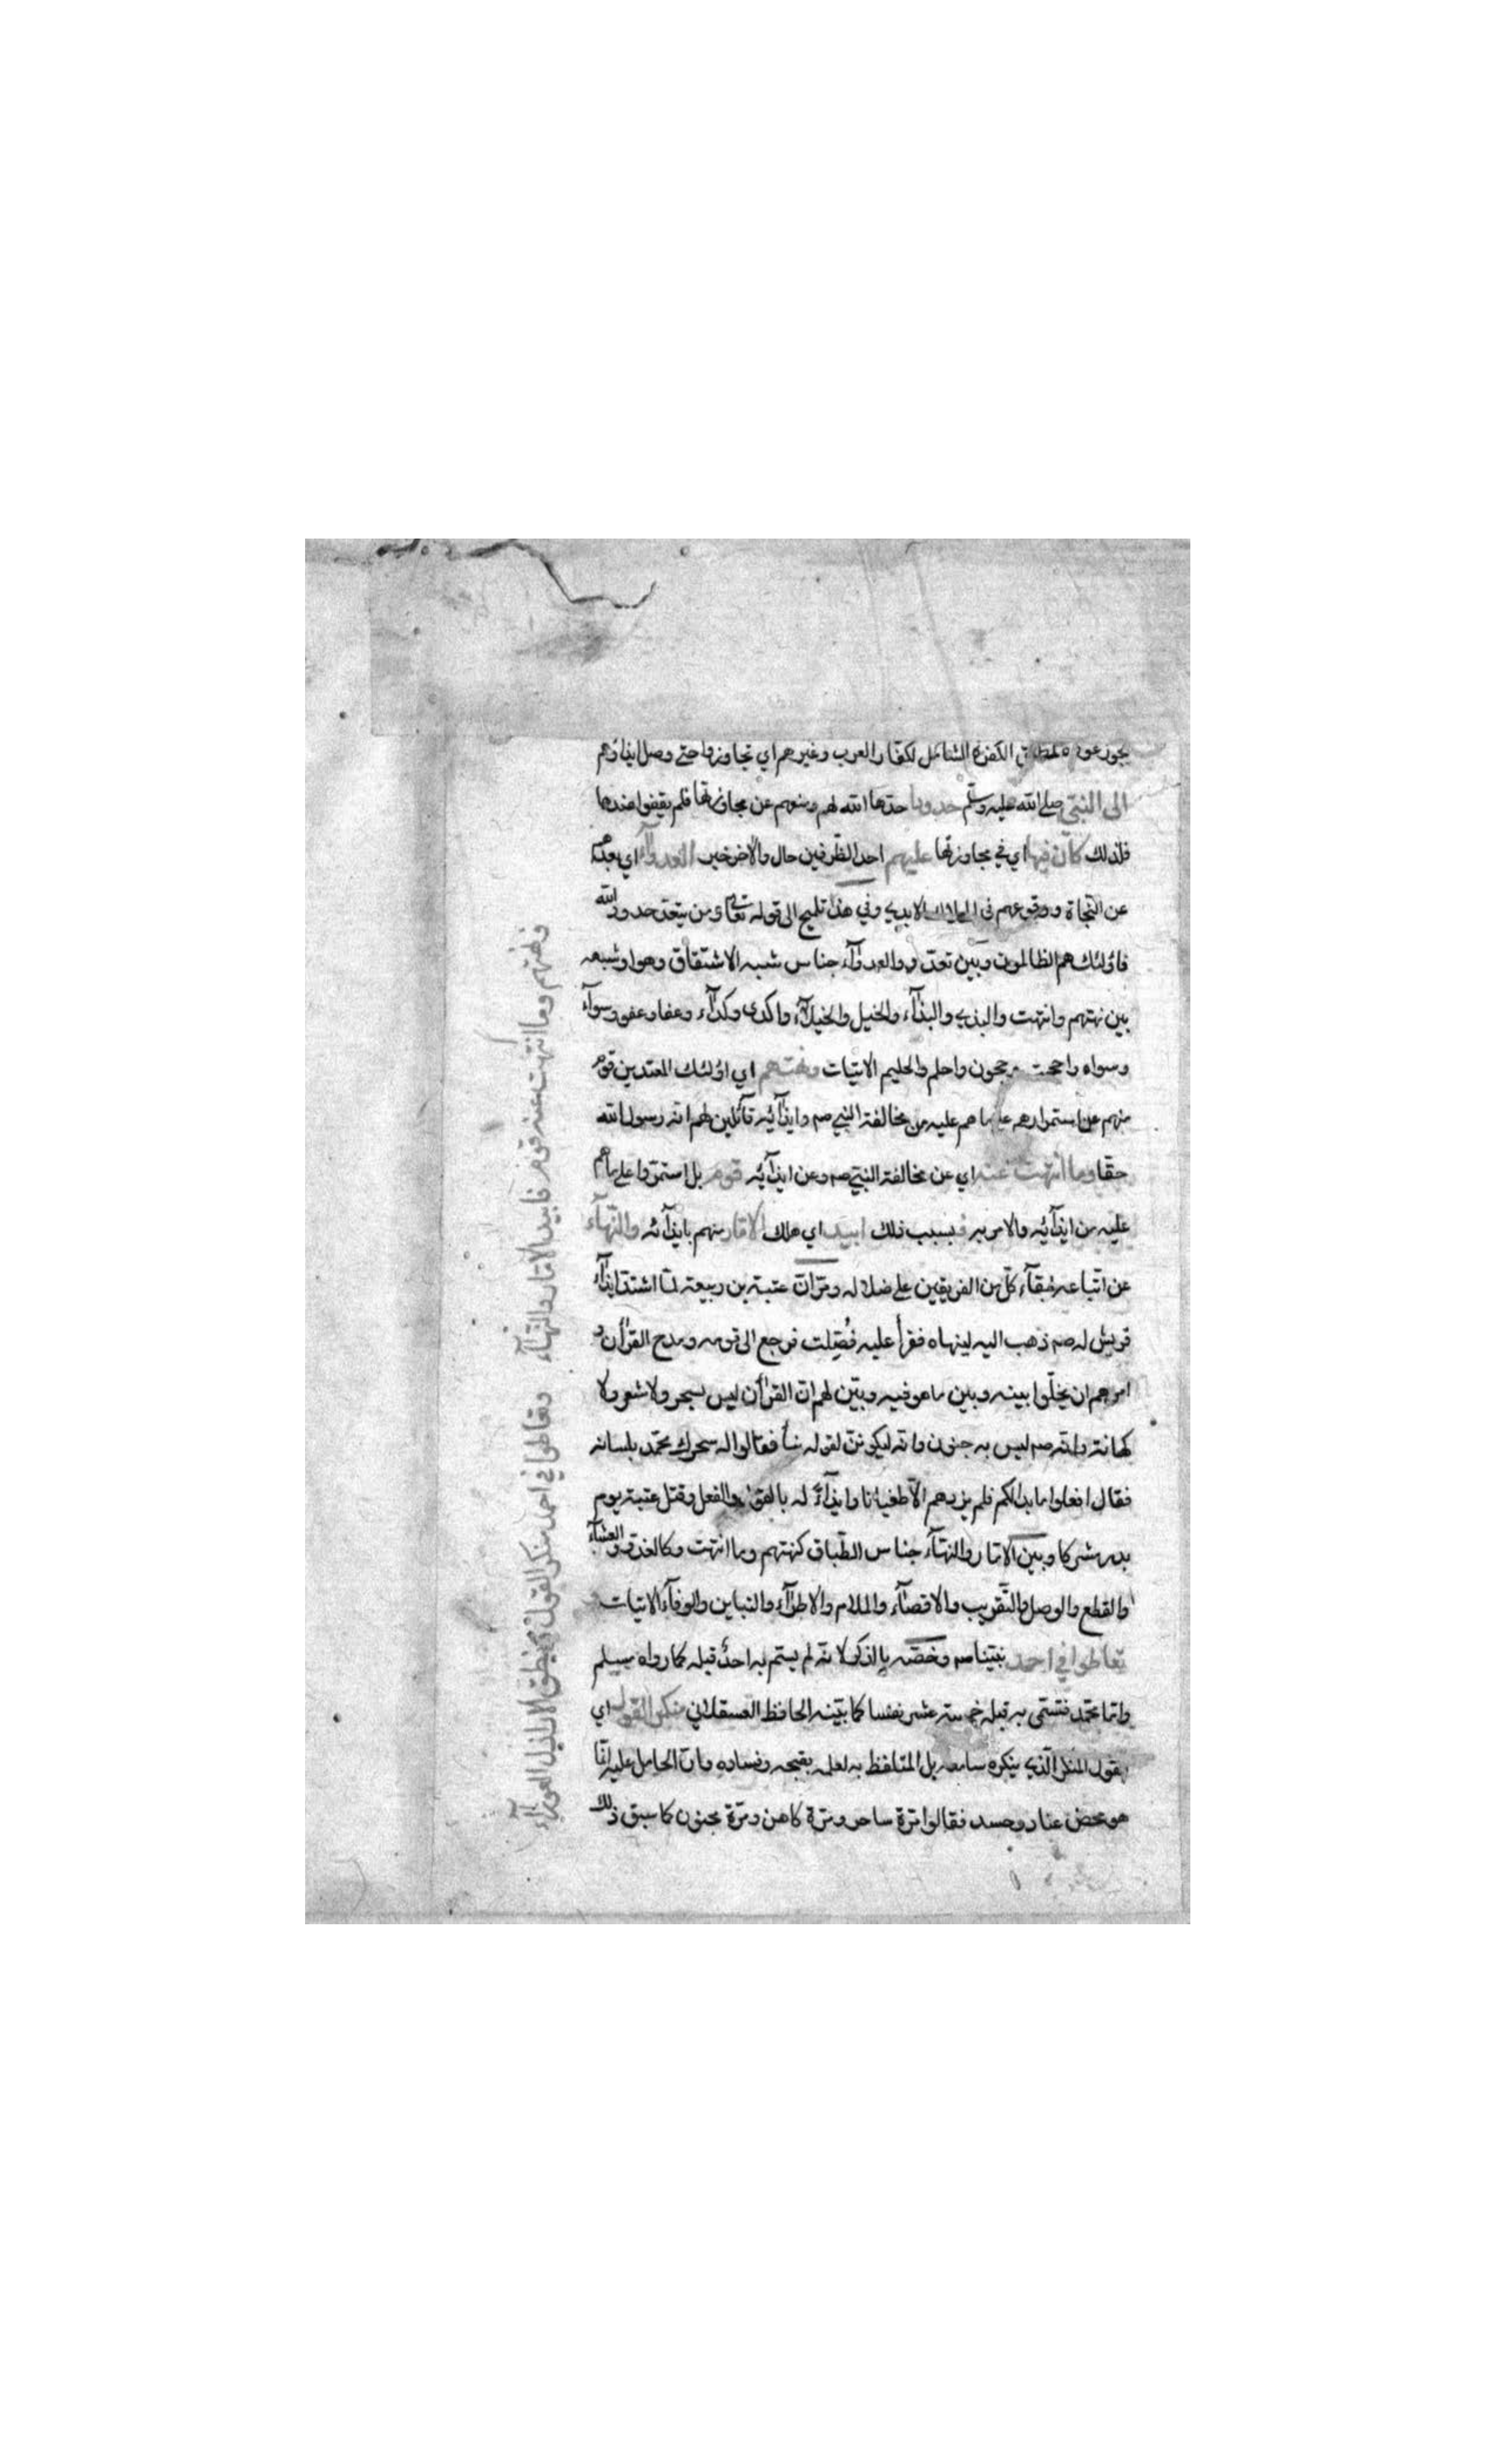 يجوز عوده لمطلق الكفرة الشامل لكفار العرب وغيرهم اي تجاوزوا حتى وصل ايذاؤهم
الى النبي صلى الله عليه وسلم حدودا حدها الله لهم ومنعهم عن مجاوزتها فلم يقفوا عندها
فلذلك كان فيها اي في مجاوزتها عليهم احد الظرفين حال والاخر خبر العدوآء اي بعدهم
عن النجاة ووقوعهم في الهلاك الابدي وفي هذا تلميح الى قوله تعالى ومن يتعد حدود الله
فاولئك هم الظالمون وبين تعدوا والعدوآء جناس شبه الاشتقاق وهو او شبهه
بين نهتهم وانتهت والبذي والبذآء والخيل والخيلآء واكدى وكدآء وعفا وعفو وسوآء
وسواه واحجت وحجون واحلم والحليم الاتيات ونهتهم اي اولئك المعتدين قوم
منهم عن استمرارهم على ما هم عليه من مخالفة النبي صم وايذآئه قآئلين لهم انه رسول الله
حقا وما انتهت عنه اي عن مخالفة النبي صم وعن ايذآئه قوم بل استمروا على ما هم
عليه من ايذآئه والامر به فبسبب ذلك ابيد اي هلك الامّار منهم بايذآئه والنهآء
عن اتباعه لبقآء كل من الفريقين على ضلاله ومرّ ان عتبة بن ربيعة لما اشتد ايذآء
قريش له صم ذهب اليه لينهاه فقرأ عليه فُصّلت فرجع الى قومه ومدح القرآن و
امرهم ان يخلّوا بينه وبين ما هو فيه وبيّن لهم ان القرآن ليس بسحر ولا شعر ولا
كهانة وانه صم ليس به جنون وانه ليكونن لقوله نبأ فقالوا له سحرك محمد بلسانه
فقال افعلوا ما بدا لكم فلم يزدهم الا طغيانا وايذآءً له بالقول والفعل وقتل عتبة يوم
بدر مشركا وبين الامّار والنهآء جناس الطباق كنهتهم وما انتهت وكالغدو والعشآء
والقطع والوصل والتقريب والاقصآء والملام والاطرآء والتباين والوفآء الاتيات
تعاطوا في احمد نبينا صم وخصه بالذكر لانه لم يسم به احدٌ قبله كما رواه مسلم
وانما محمد فتسمى به قبله خمسة عشر نفسا كما بينه الحافظ العسقلاني منكر القول اي
القول المنكر الذي ينكره سامعه بل المتلفظ به لعلمه بقبحه وفساده وان الحامل عليه انما
هو محض عناد وحسد فقالوا مرة ساحر ومرة كاهن ومرة مجنون كما سبق ذلك
ونهتهم وما انتهت عنه قوم فابيد الامّار والنهآء
وتعاطوا في احمد منكر القول ونطق الاراذل العورآء